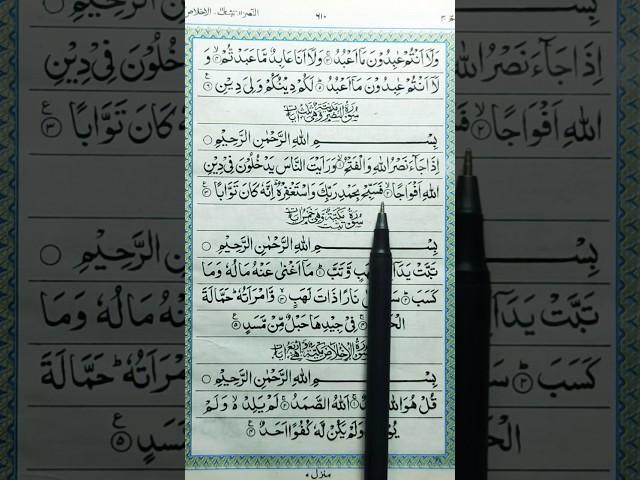 النصر ١١٠، تبت ١١١، الاخلاص
٦١٠
وَلَآ اَنْتُمْ عٰبِدُوْنَ مَآ اَعْبُدُ ۚ وَلَآ اَنَا عَابِدٌ مَّا عَبَدْتُّمْ ۙ وَ
لَآ اَنْتُمْ عٰبِدُوْنَ مَآ اَعْبُدُ ؕ لَكُمْ دِيْنُكُمْ وَلِىَ دِيْنِ ۶
بِسْمِ اللهِ الرَّحْمٰنِ الرَّحِيْمِ
اِذَا جَآءَ نَصْرُ اللهِ وَالْفَتْحُ ۙ وَرَاَيْتَ النَّاسَ يَدْخُلُوْنَ فِىْ دِيْنِ
اللهِ اَفْوَاجًا ۙ فَسَبِّحْ بِحَمْدِ رَبِّكَ وَاسْتَغْفِرْهُ ؕ اِنَّهٗ كَانَ تَوَّابًا ۳
بِسْمِ اللهِ الرَّحْمٰنِ الرَّحِيْمِ
تَبَّتْ يَدَآ لَهَبٍ وَّتَبَّ ؕ مَآ اَغْنٰى عَنْهُ مَالُهٗ وَمَا
كَسَبَ ؕ نَارًا ذَاتَ لَهَبٍ ۚ وَّامْرَاَتُهٗ ؕ حَمَّالَةَ
فِىْ جِيْدِهَا حَبْلٌ مِّنْ مَّسَدٍ ۵
سُوْرَةُ الْاِخْلَاصِ
بِسْمِ اللهِ الرَّحْمٰنِ الرَّحِيْمِ
قُلْ هُوَ اللهُ اَللهُ الصَّمَدُ ۚ لَمْ يَلِدْ ۙ وَلَمْ
وَلَمْ يَكُنْ لَّهٗ كُفُوًا اَحَدٌ ۴
منزل ٧